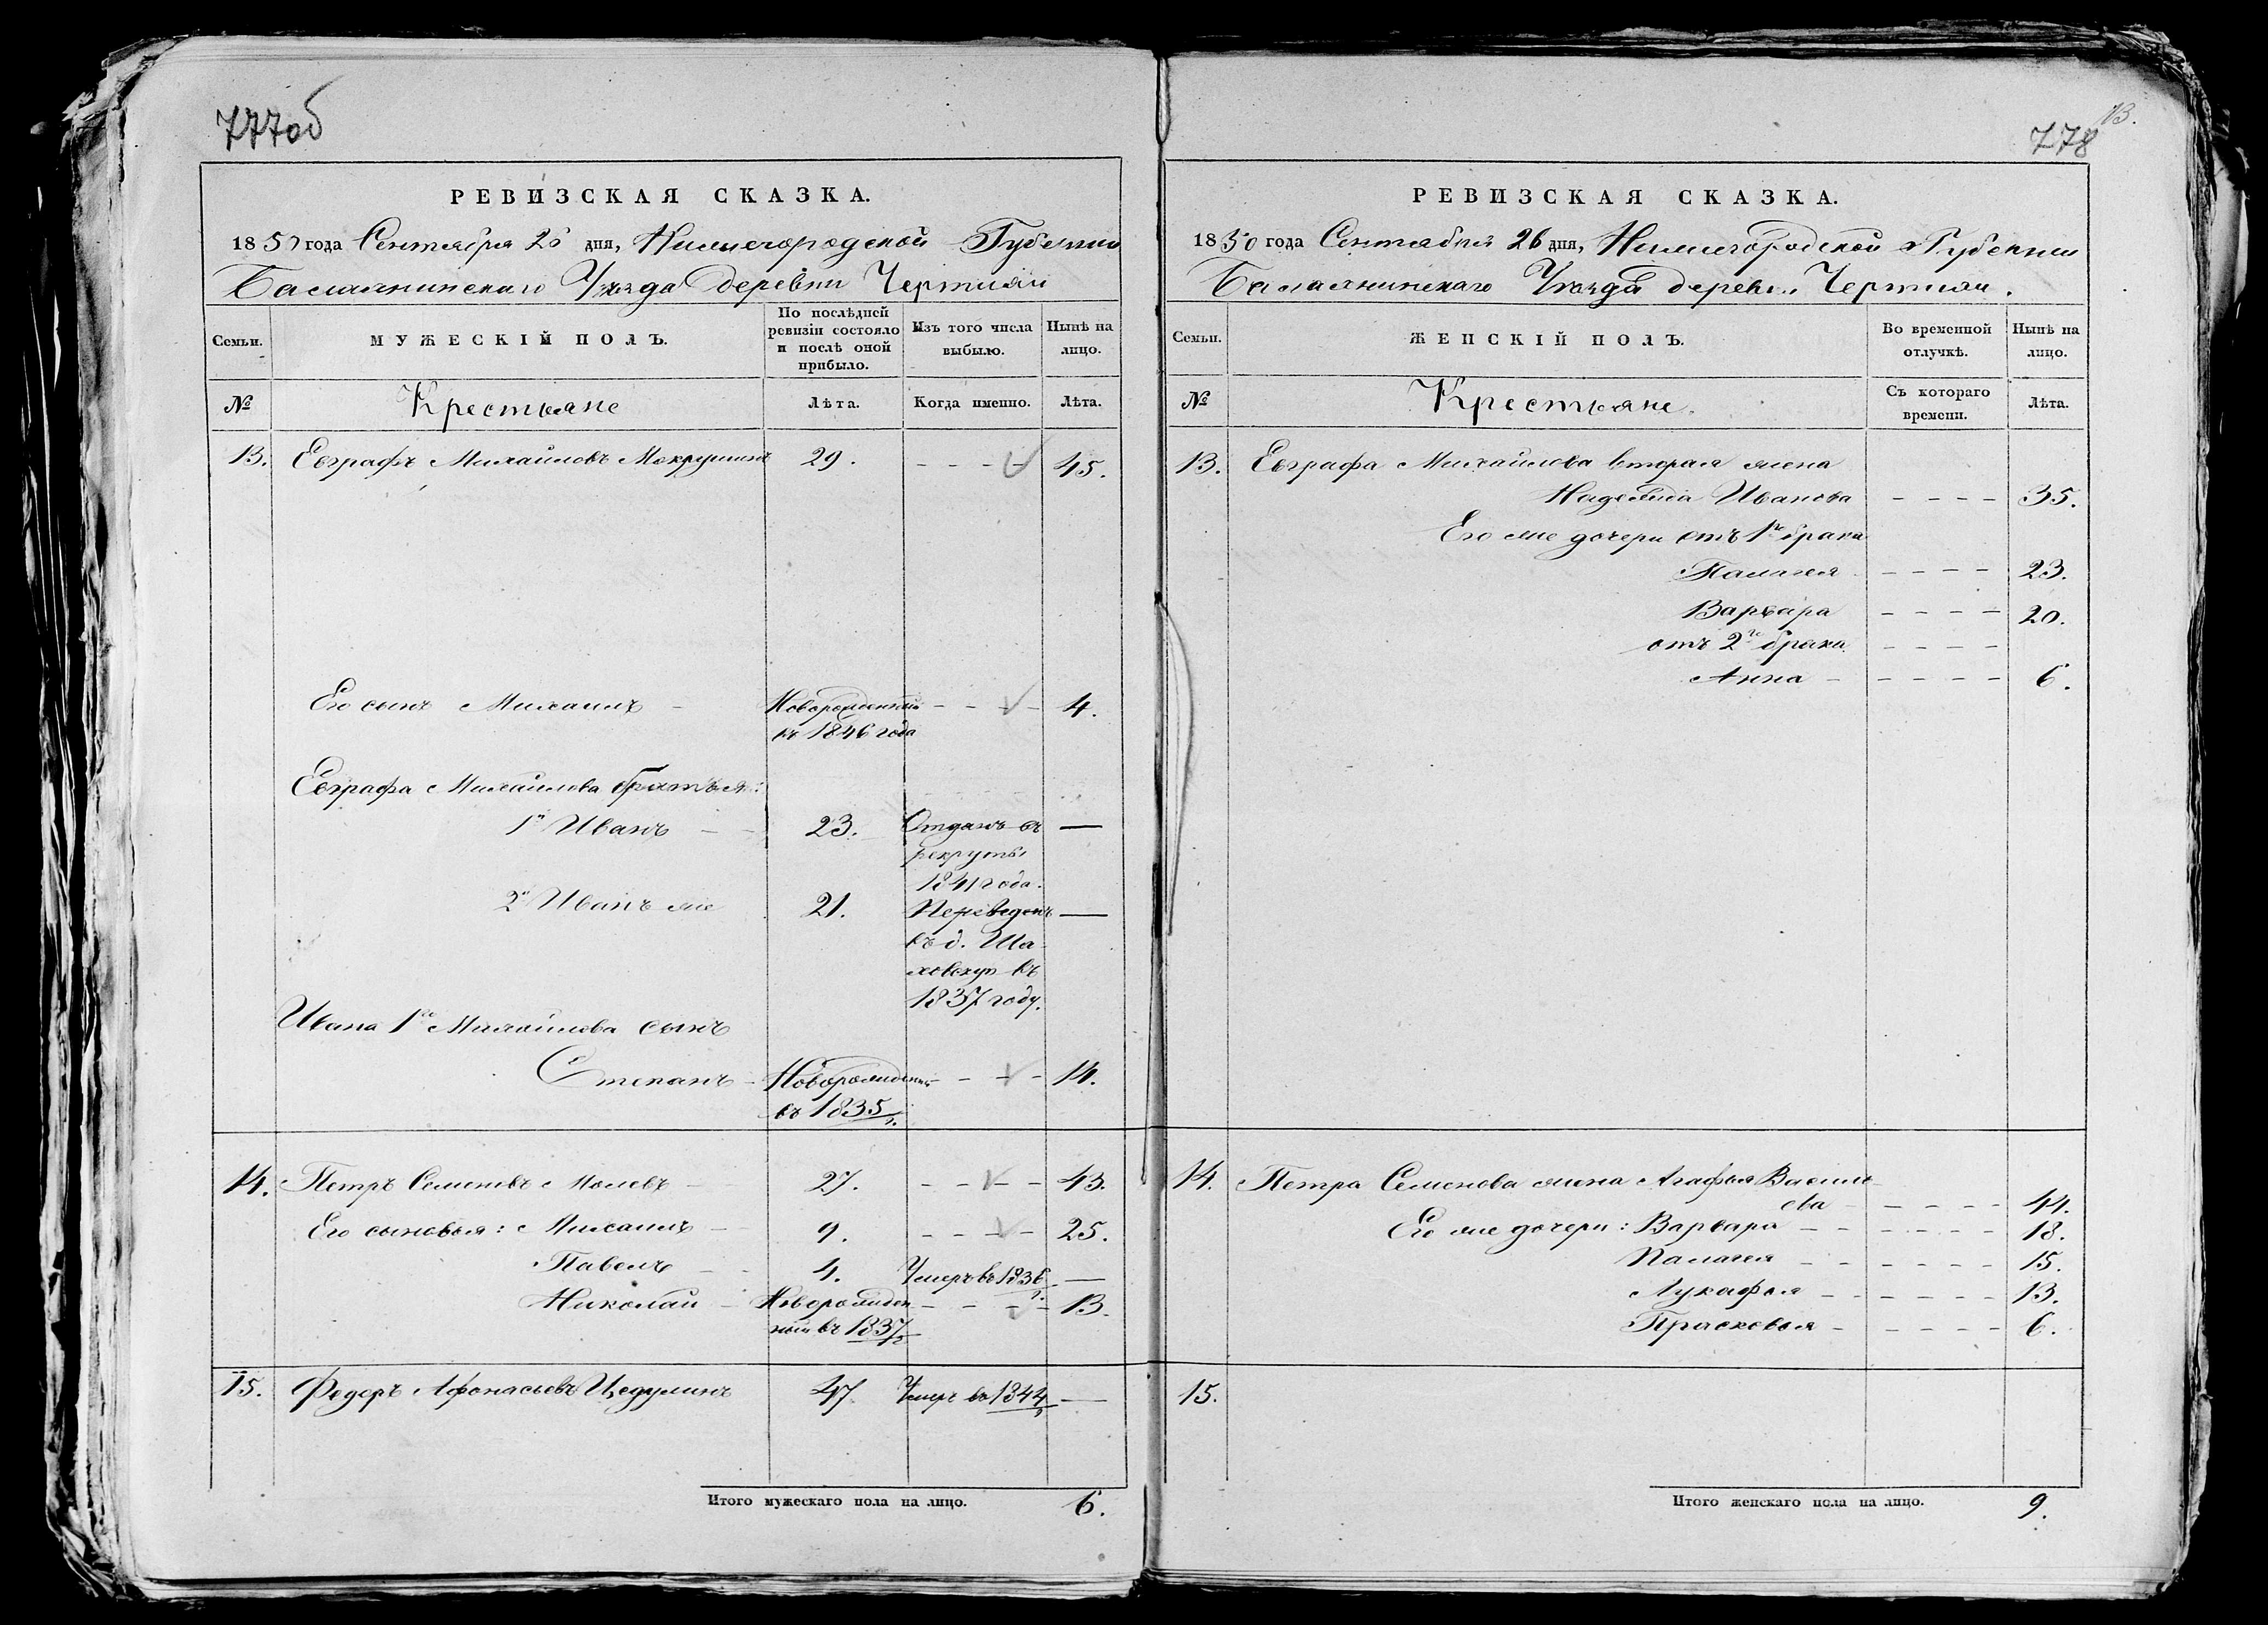 777об
РЕВИЗСКАЯ СКАЗКА.
1850 года Сентября 26 дня, Нижегородской Губернии
Балахнинскаго Уезда деревни Чертжи
Семьи.
МУЖЕСКІЙ ПОЛЪ.
По послѣдней ревизіи состояло и послѣ оной прибыло.
Изъ того числа выбыло.
Нынѣ на лицо.
№
Крестьяне
Лѣта.
Когда именно.
Лѣта.
13. Евграфъ Михайловъ Мокрушинъ 29. 45.
Его сынъ Михаилъ Новорожденный 4.
въ 1846 года
Евграфа Михайлова братья:
1й Иванъ 23. Отданъ въ —
рекруты
1841 года.
2й Иванъ же 21. Переведенъ —
въ д. Ша-
ховскую въ
1837 году.
Ивана 1го Михайлова сынъ
Степанъ Новорожденный 14.
въ 1835
14. Петръ Семеновъ Молевъ 27. 43.
Его сыновья: Михаилъ 9. 25.
Павелъ 4. Умеръ въ 1836 —
Николай Новорожден 13.
ный въ 1837
15. Федоръ Афонасьевъ Цедулинъ 47 Умеръ въ 1844 —
Итого мужескаго пола на лицо. 6.
13.
778
РЕВИЗСКАЯ СКАЗКА.
1850 года Сентября 26 дня, Нижегородской Губернии
Балахнинскаго Уезда деревни
Семьи.
ЖЕНСКІЙ ПОЛЪ.
Во временной отлучкѣ.
Нынѣ на лицо.
№
Крестьяне.
Съ котораго времени.
Лѣта.
13. Евграфа Михайлова вторая жена
Надежда Иванова 35.
Его же дочери отъ 1го брака
Палагея 23.
Варвара 20.
отъ 2го брака
Анна 6.
14. Петра Семенова жена Агафья Василь
ева 44.
Его же дочери: Варвара 18.
Палагея 15.
Лукафья 13.
Прасковья 6.
15.
Итого женскаго пола на лицо. 9.